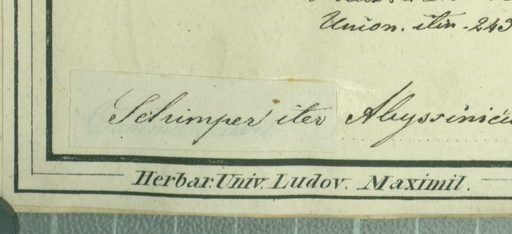 Union. itin. 243
Schimper iter Abyssinicu
Herbar. Univ. Ludov. Maximil.